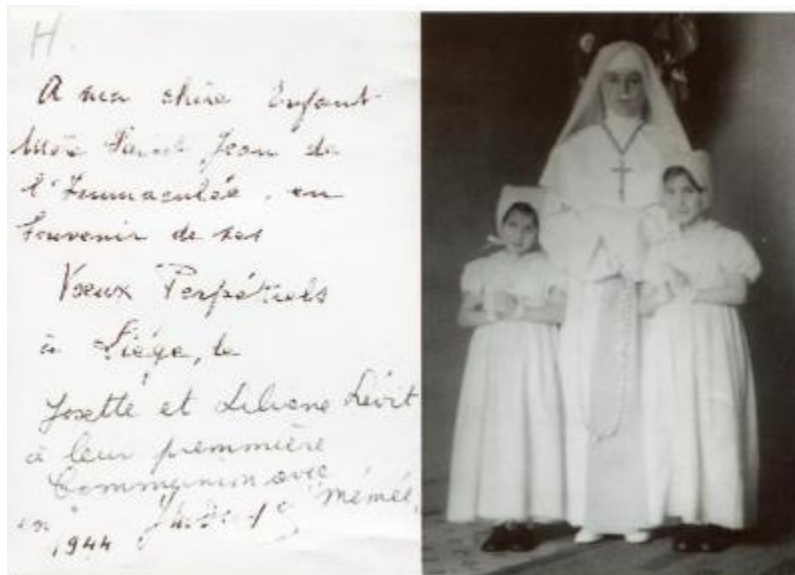 H.
A ma chère Enfant
Mère Saint Jean de
l'Immaculée, en
Souvenir de ses
Voeux Perpétuels
à Liége, le
Josette et Liliane Lévit
à leur premmière
Communion avec
mémée,
en
1944